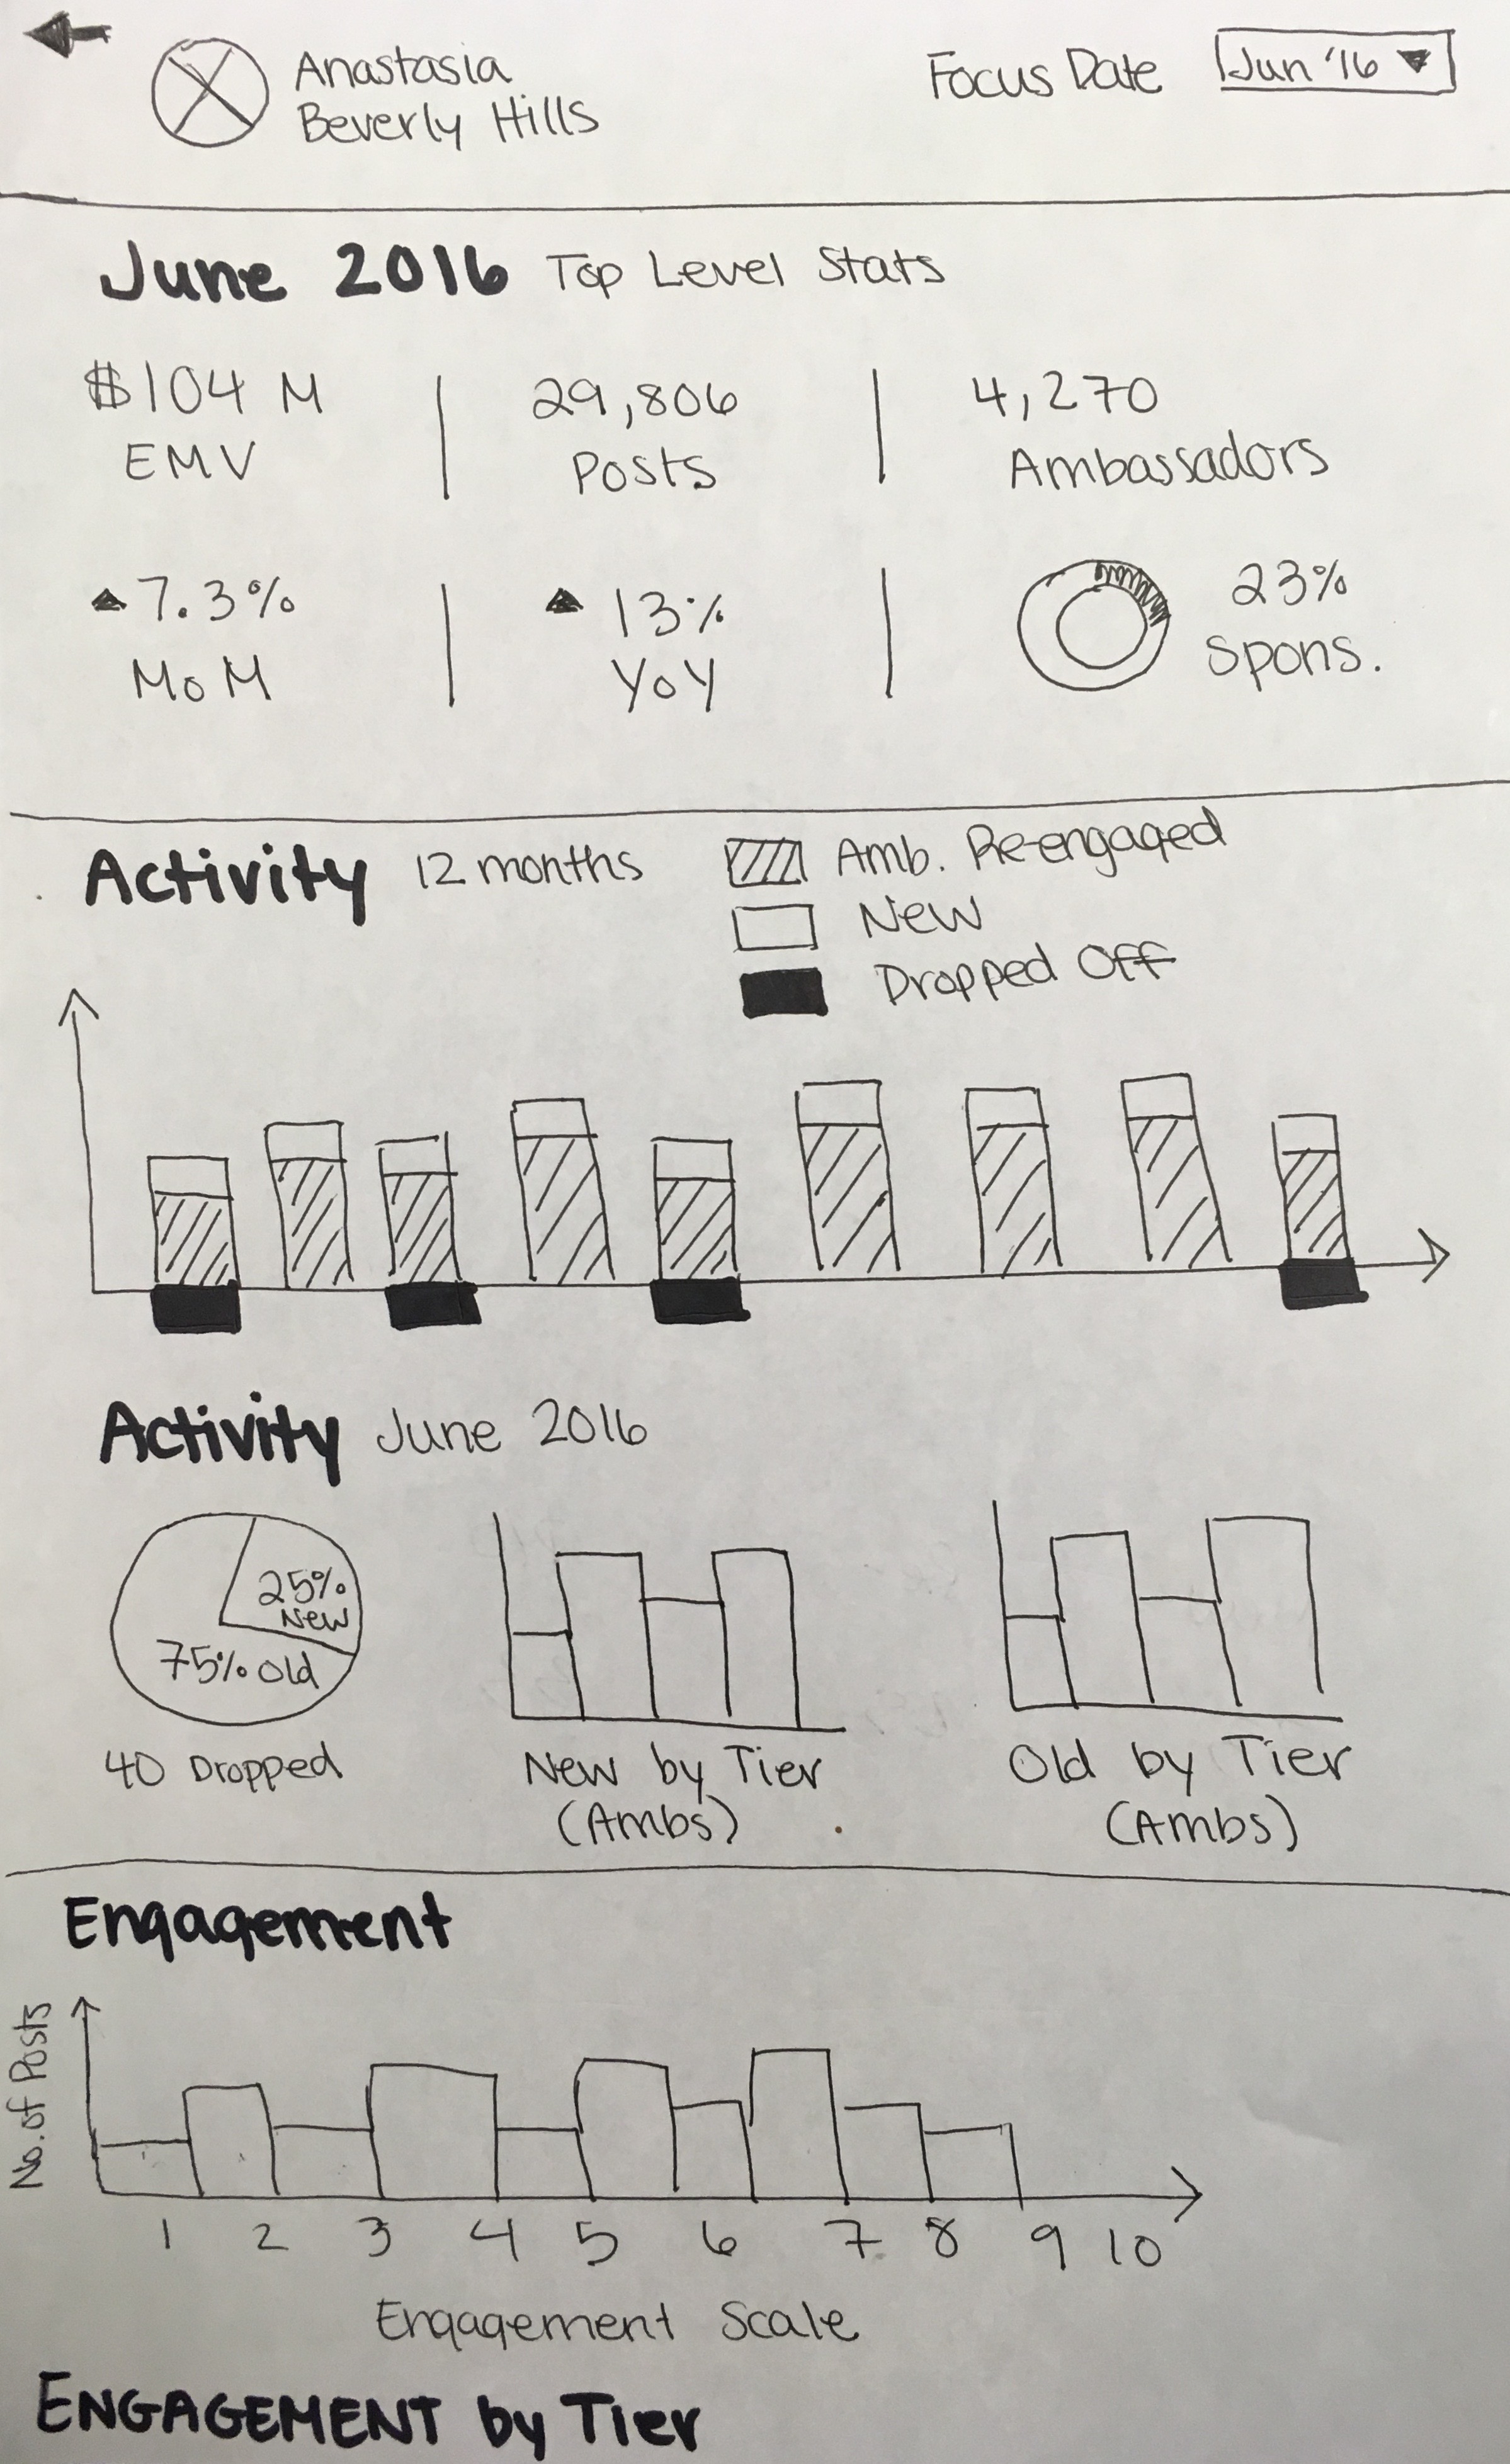 Anastasia
Beverly Hills
Focus Date Jun '16
June 2016 Top Level Stats
$104 M
EMV
29,806
Posts
4,270
Ambassadors
7.3%
MoM
13%
YoY
23%
Spons.
Activity 12 months
Amb. Re-engaged
New
Dropped Off
Activity June 2016
25%
New
75% Old
40 Dropped
New by Tier
(Ambs)
Old by Tier
(Ambs)
Engagement
No. of Posts
1 2 3 4 5 6 7 8 9 10
Engagement Scale
ENGAGEMENT by Tier